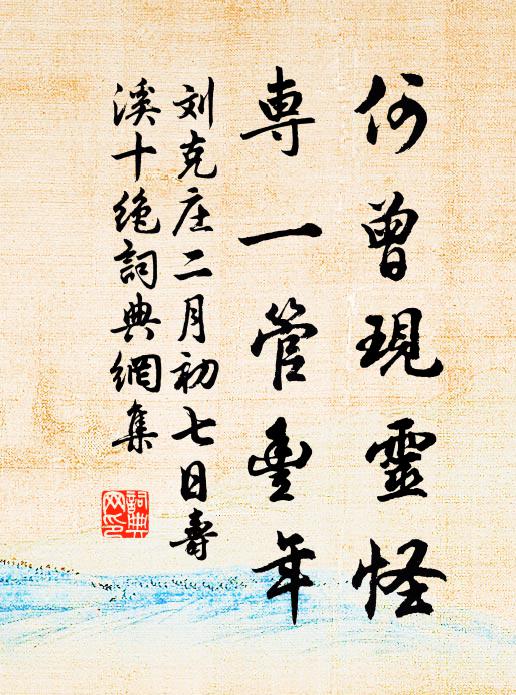 何曾現靈怪
専一管豊年
刘克庄二月初七日壽
溪十绝詞典網集
詞典
网印